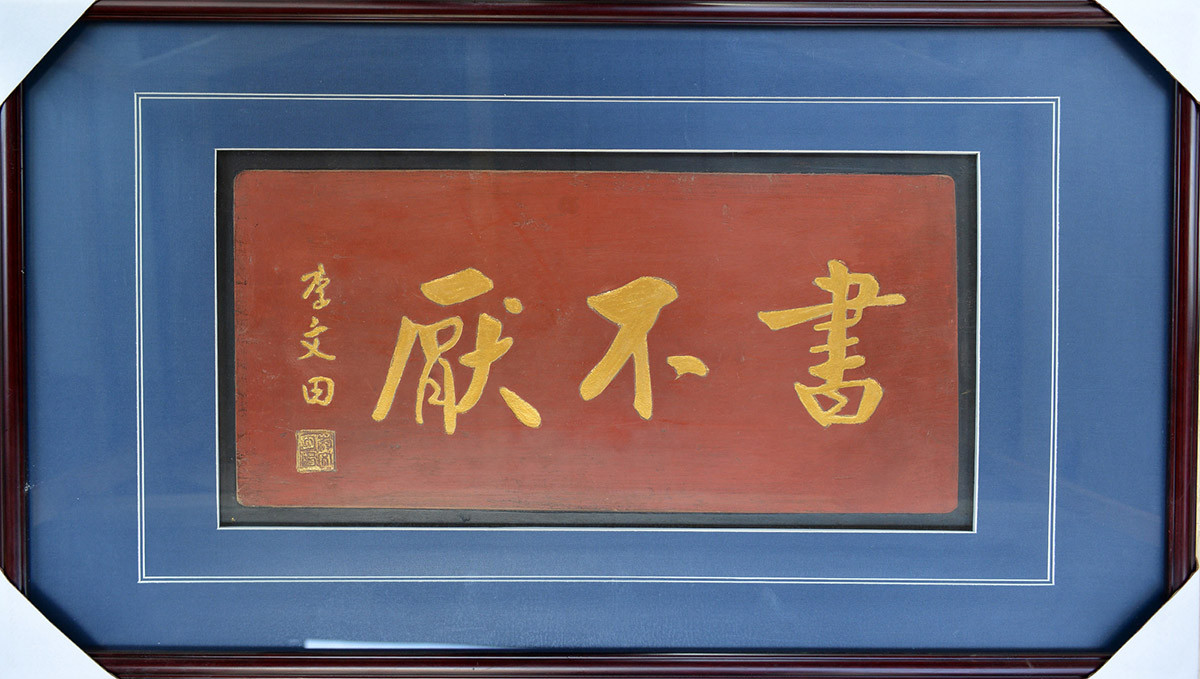 書不厭
李文田